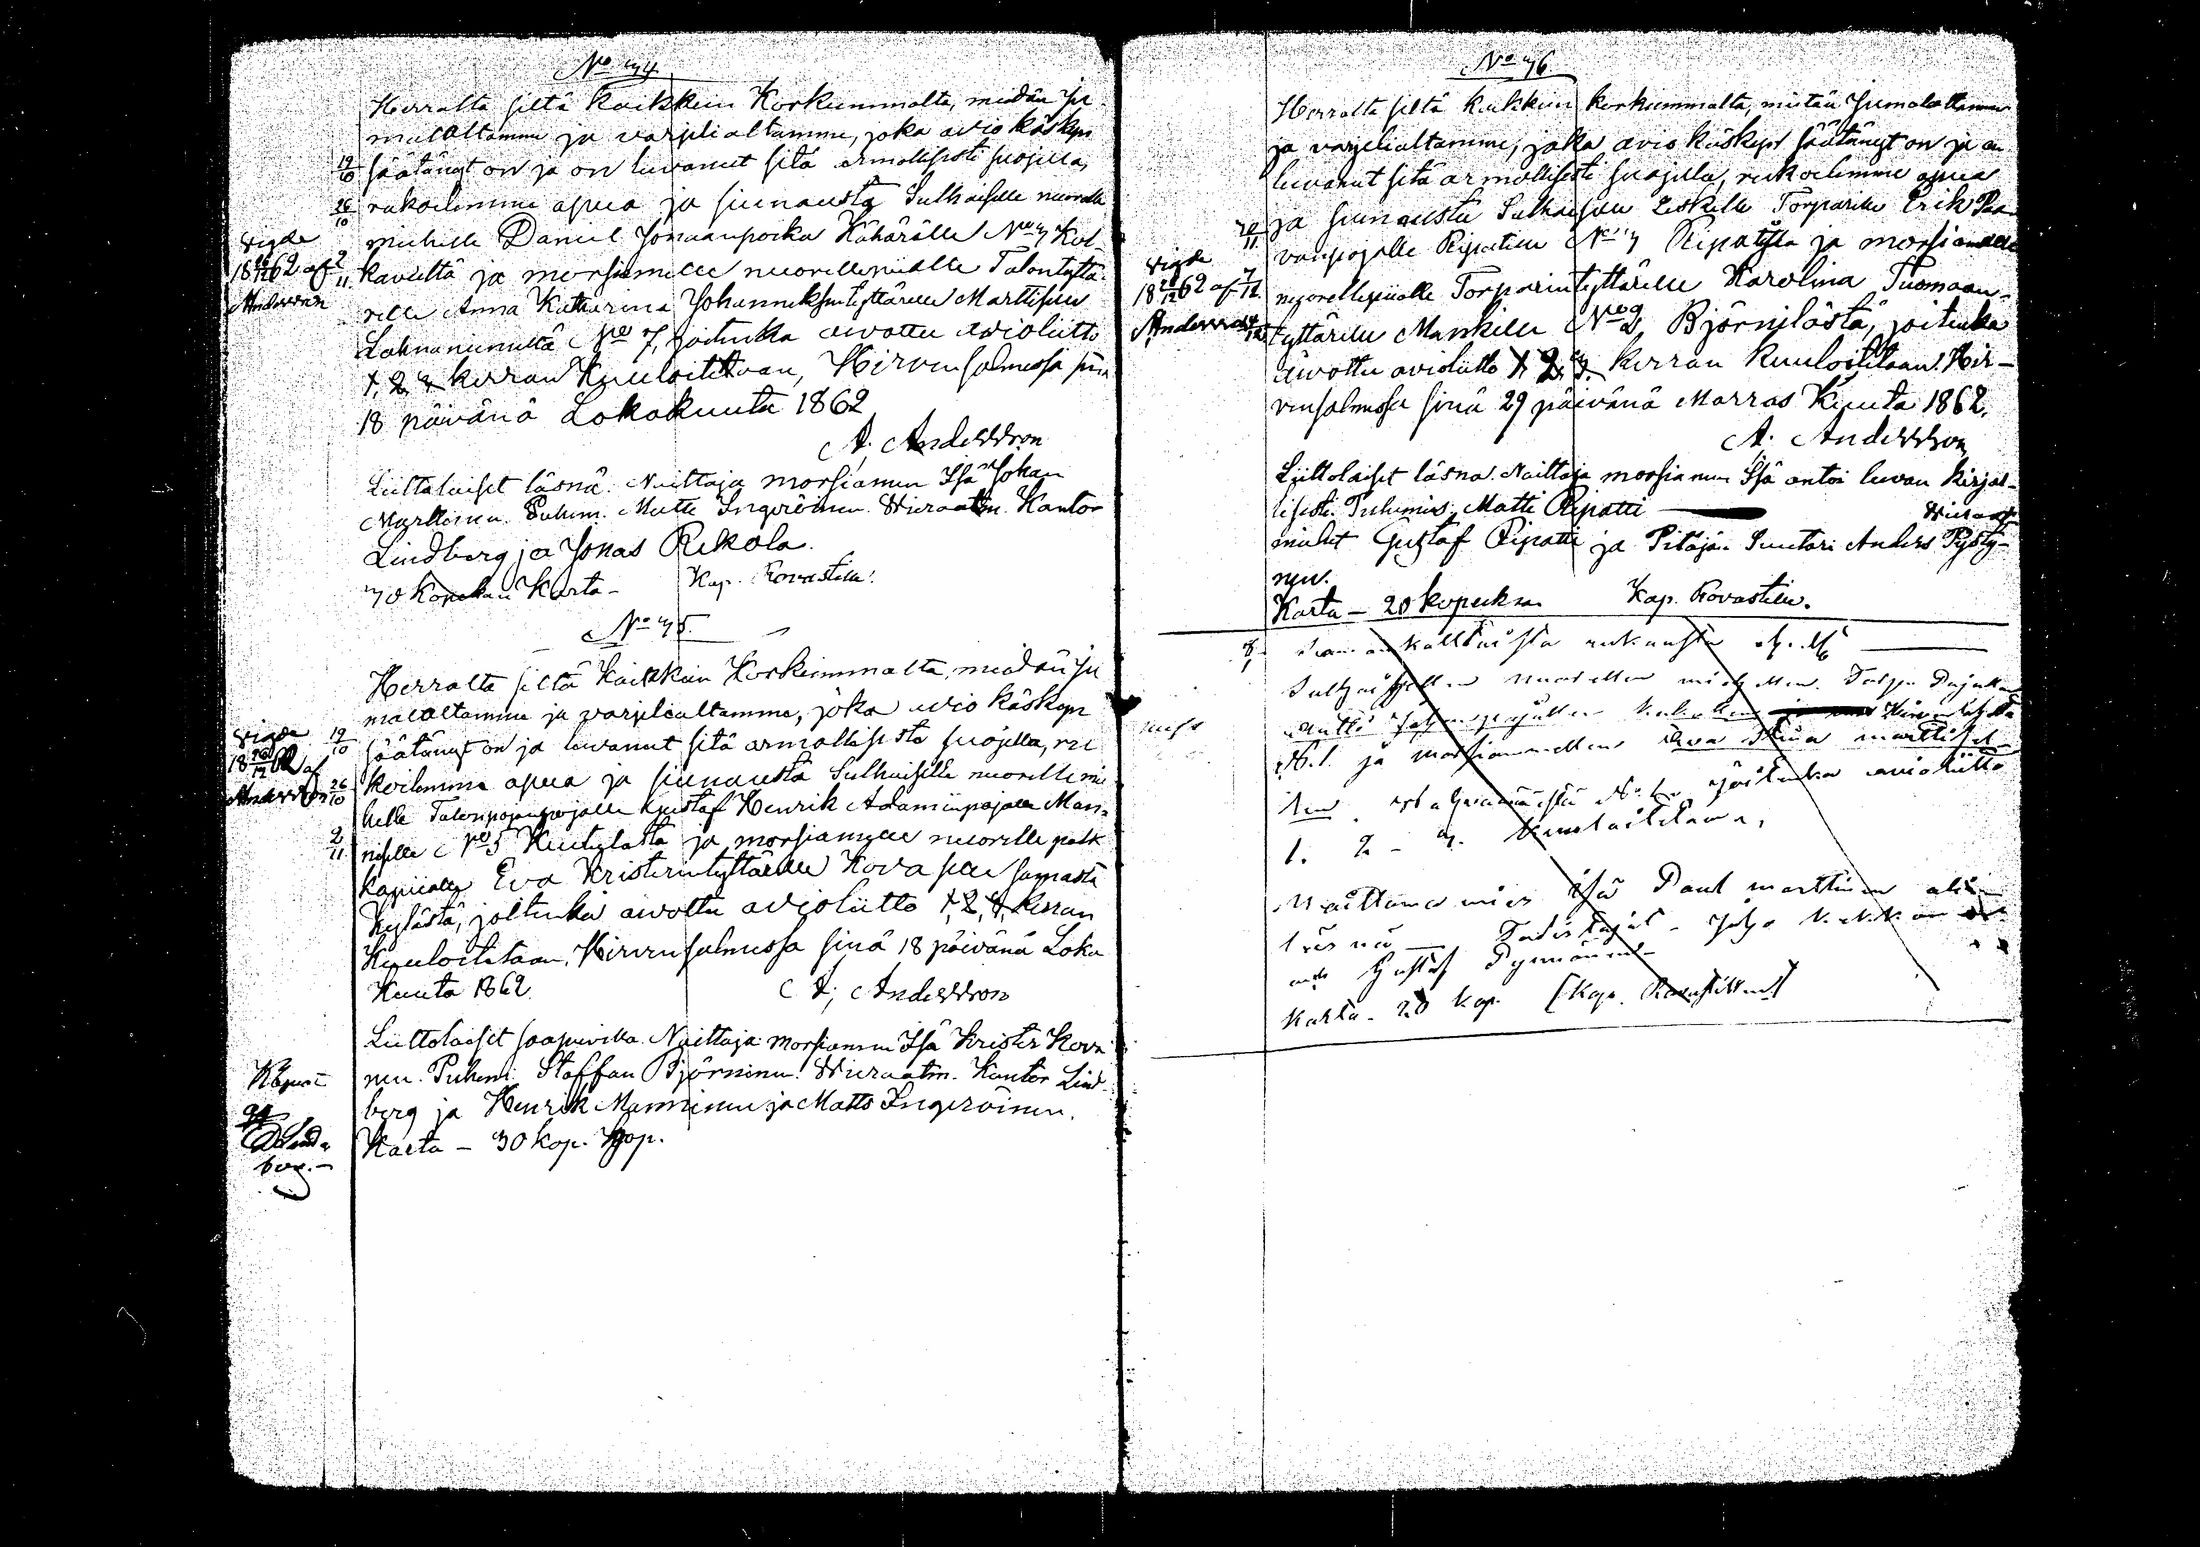 No 74.
Herralta siltä kaikkein Korkeimmalta, meidän Ju-
malaltamme ja varjelialtamme, joka avio käskyn
19/10 säätänyt on ja on luvannut sitä armollisesti suojella,
26/10 rukoilemme apua ja siunausta Sulhaiselle nuorelle
miehelle Daniel Jonaanpoika Kähärälle No 3 Kol-
kavelta ja morsiamelle nuorellepiialle Talontyttä-
relle Anna Katharina Johanneksentyttärelle Marttisen
Lahnaniemeltä No 7, joitenka aivottu avioliitto
1, 2, 3 kerran Kuuloitetaan, Hirvensalmessa sinä
18 päivänä Lokakuuta 1862
A. Andersson
vigde
18 62 af 2/11
Andersson
Liittolaiset läsnä. Naittaja morsiamen Isä Johan
Marttinen. Puhem. Matts Ingeröinen. Wieraatm. Kantor
Lindberg ja Jonas Rekola.
30 Kopekan Karta - Kap. Rovastille.
No 75.
Herralta siltä Kaikkein Korkeimmalta, meidän Ju
malaltamme ja varjelialtamme, joka avio käskyn
vigde 19/10 säätänyt on ja luvannut sitä armollisesti suojella, ru
18 62 af koilemme apua ja siunausta Sulhaiselle nuorelle mie
Andersson 26/10 helle Talonpojanpojalle Gustaf Henrik Adaminpojalle Man-
2/11 niselle No 5 Kuitulasta ja morsiamelle nuorelle palk
kapiialle Eva Kristerintyttärelle Kovasen samasta
Kylästä, joitenka aivottu avioliitto 1, 2, 3, kerran
Kuuloitetaan, Hirvensalmessa sinä 18 päivänä Loka
Kuuta 1862.
A. Andersson
Liittolaiset saapuvilla. Naittaja morsiamen Isä Krister Kova
nen. Puhemi. Staffan Björninen. Wieraatm. Kantor Lind-
berg ja Henrik Manninen ja Matts Ingeröinen.
Karta - 30 kop. Kop.
No 76.
Herralta siltä kaikkein korkeimmalta, meidän Jumalaltamme
ja varjelialtamme, joka avio käskyn säätänyt on ja on
luvannut sitä armollisesti suojella, rukoilemme apua
ja siunausta Sulhaiselle Leskelle Torparille Erik Paa-
vonpojalle Ripatille No 3 Ripatista ja morsiamelle
nuorellepiialle Torparintyttärelle Karolina Tuomaan-
tyttärelle Mankille No 2 Björnilästä, joitenka
aivottu avioliitto 1, 2, 3. kerran Kuuloitetaan. Hir-
vensalmessa sinä 29 päivänä Marras Kuuta 1862.
A. Andersson
vigde
18 62 af 7/12
Andersson
Liittolaiset läsnä. Naittaja morsiamen Isä antoi luvan kirjal-
lisesti. Puhemies Matti Ripatti Wieraat
miehet Gustaf Ripatti ja Pitäjän Suutari Anders Pysty-
nen.
Karta - 20 kopekkaa Kap. Rovastille.
Sulhaisellen nuorellen miehellen
No 1. ja morsiamellen Eva Stina Marttiset
joitenka avioliitto
1. 2 - 3. kuuloitetaan,
Naittamamies Isä Paul Marttinen
läsnä — Todistajat -
Gustaf
Karta - 20 kop. [Kap. Rovastillen]